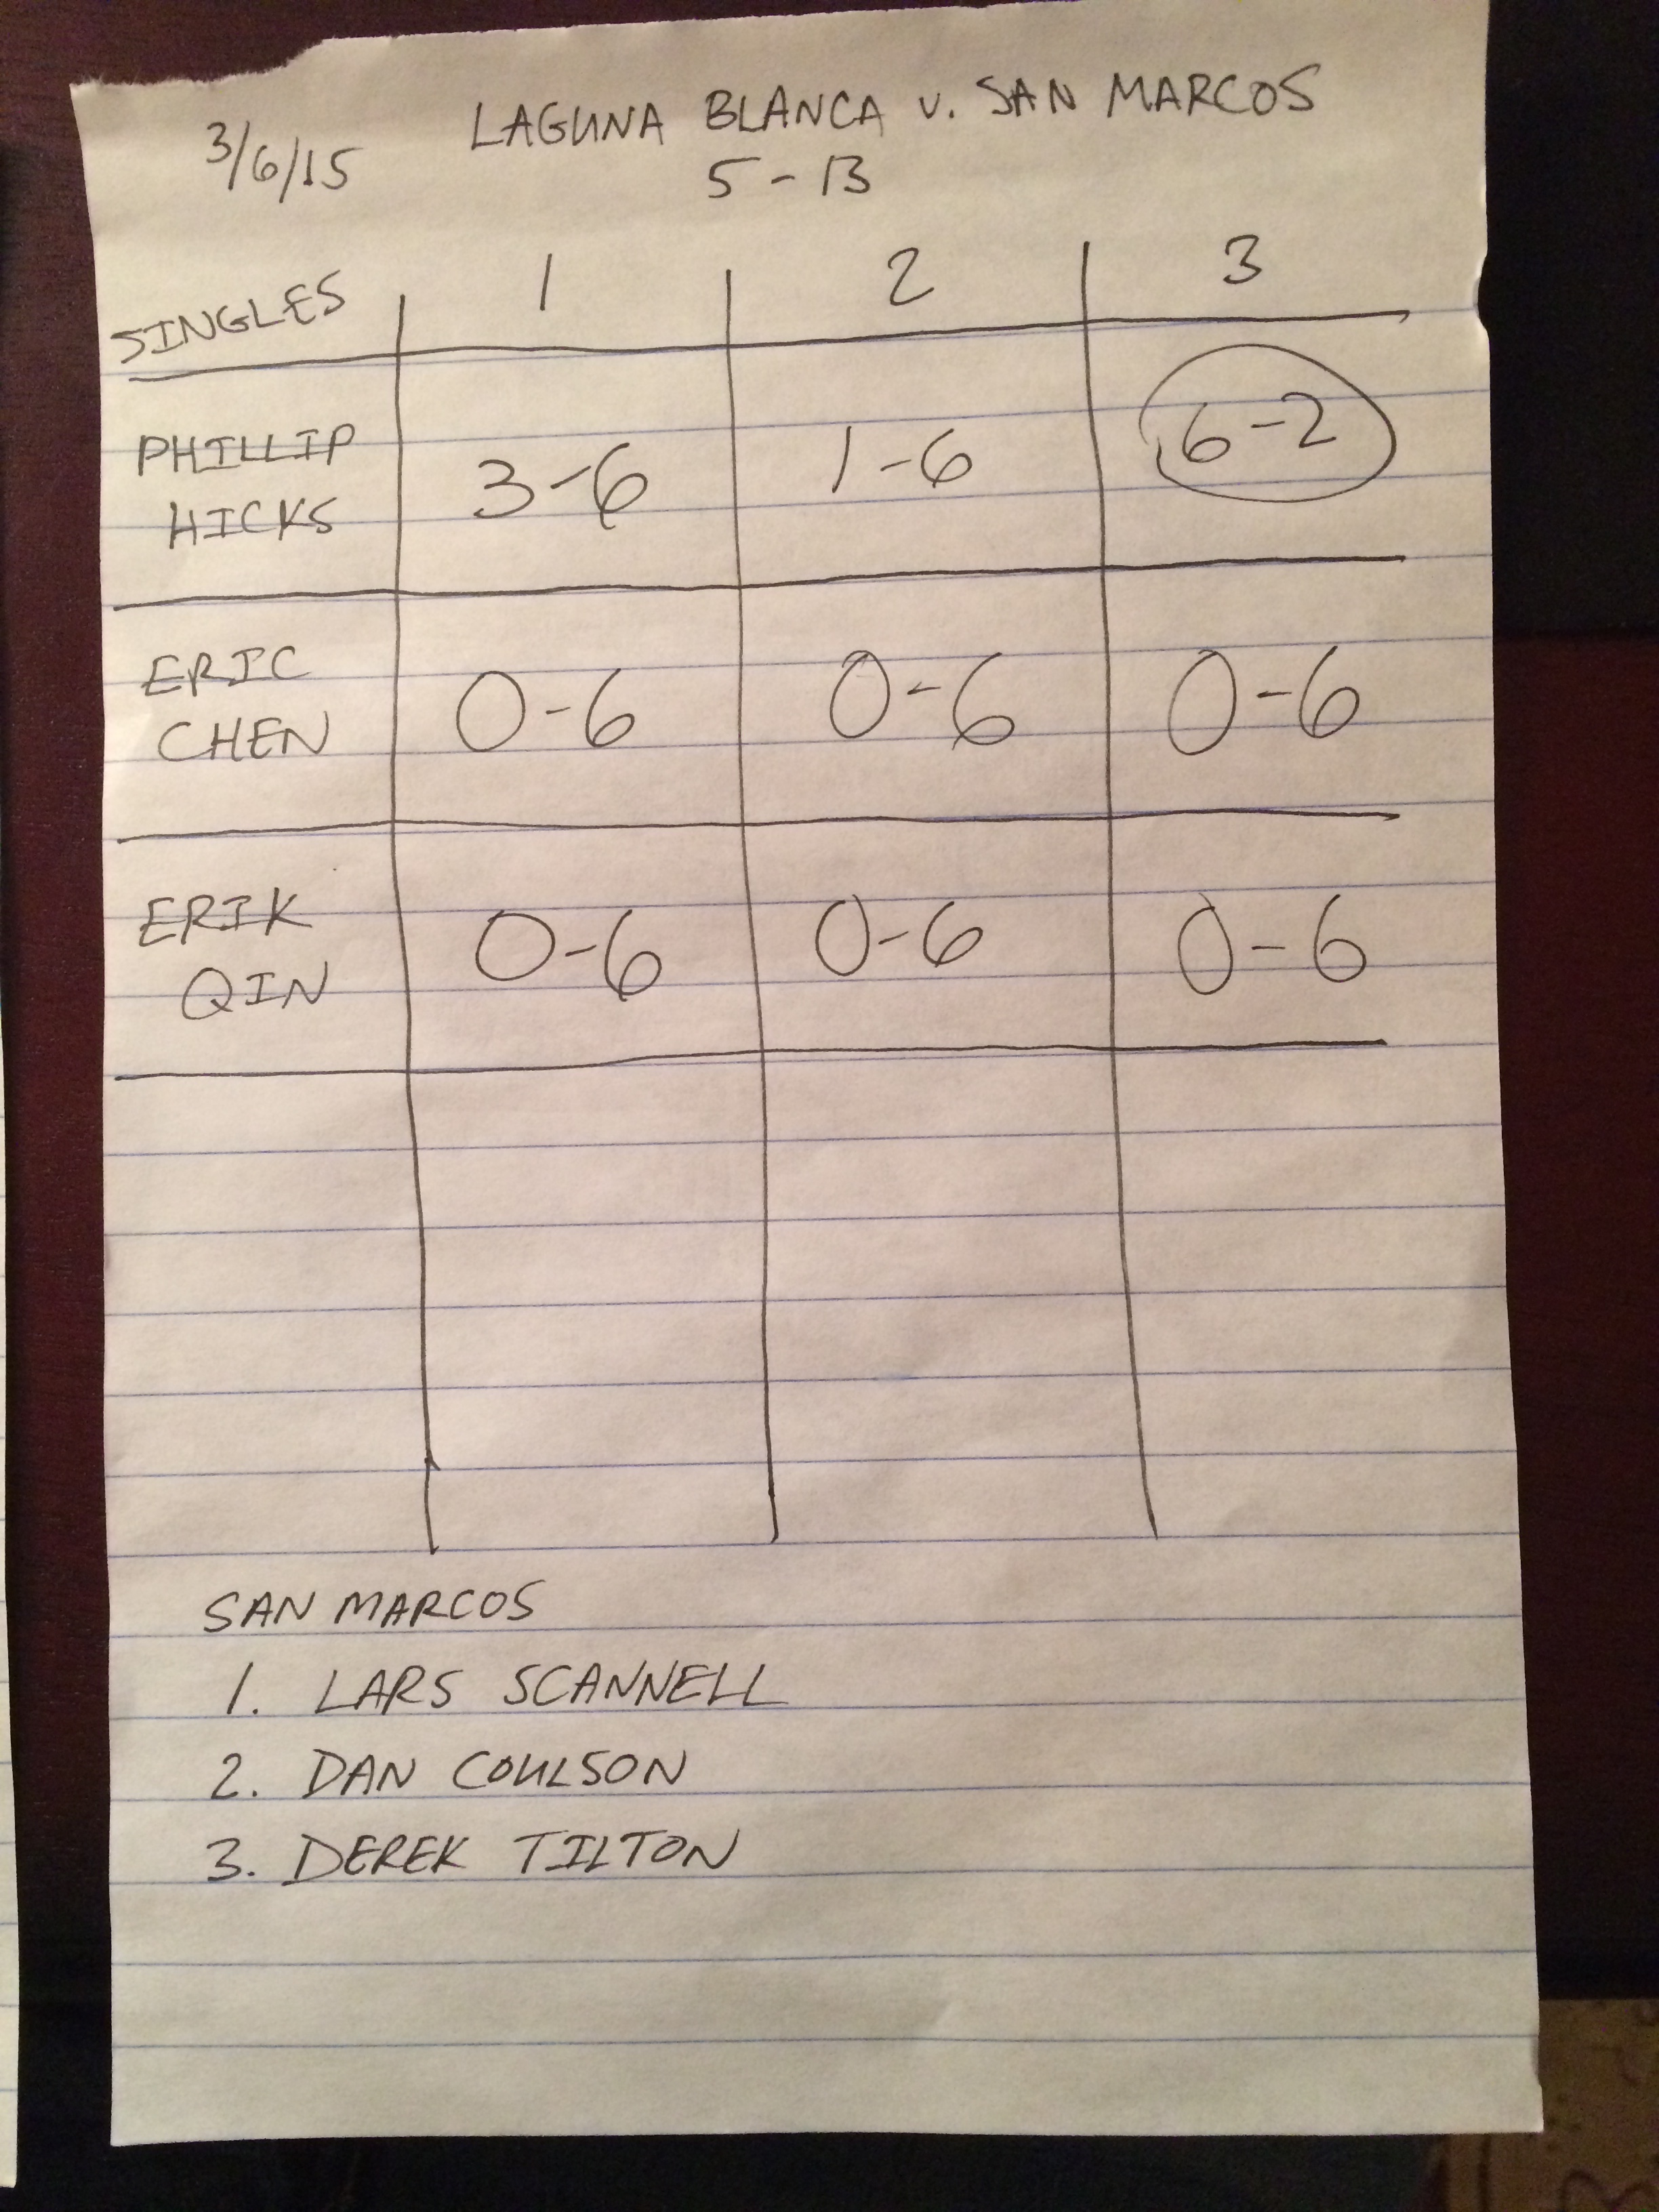 3/6/15 LAGUNA BLANCA v. SAN MARCOS
5-13
SINGLES 1 2 3
PHILLIP
HICKS 3-6 1-6 6-2
ERIC
CHEN 0-6 0-6 0-6
ERIK
QIN 0-6 0-6 0-6
SAN MARCOS
1. LARS SCANNELL
2. DAN COULSON
3. DEREK TILTON